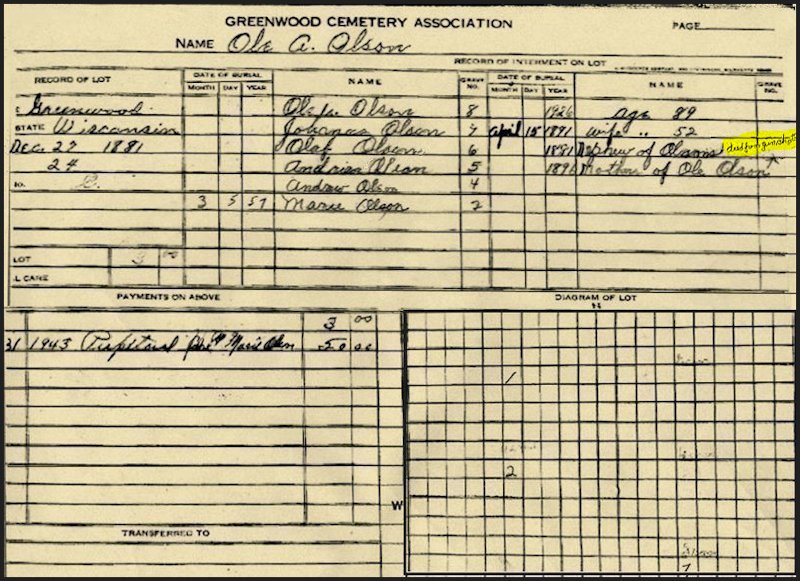 GREENWOOD CEMETERY ASSOCIATION
PAGE
NAME Ole A. Olson
RECORD OF INTERMENT ON LOT
RECORD OF LOT DATE OF BURIAL NAME GRAVE NO. DATE OF BURIAL NAME GRAVE NO.
MONTH DAY YEAR MONTH DAY YEAR
Greenwood Olson 8 1926 Age 89
STATE Wisconsin Johanas Olson 7 April 15 1891 wife " 52
Dec. 27 1881 Olaf Olson 6 1881 Nephew of Olsons died from gunshot
24 Andrian Olson 5 1896 Mother of Ole Olson
NO. Andrew Olson 4
3 5 57 Marie Olson 2
LOT 3 00
L CARE
PAYMENTS ON ABOVE
3 00
31 1943 Perpetual Marie Olson 50 00
TRANSFERRED TO
DIAGRAM OF LOT
N
1
2
W
7